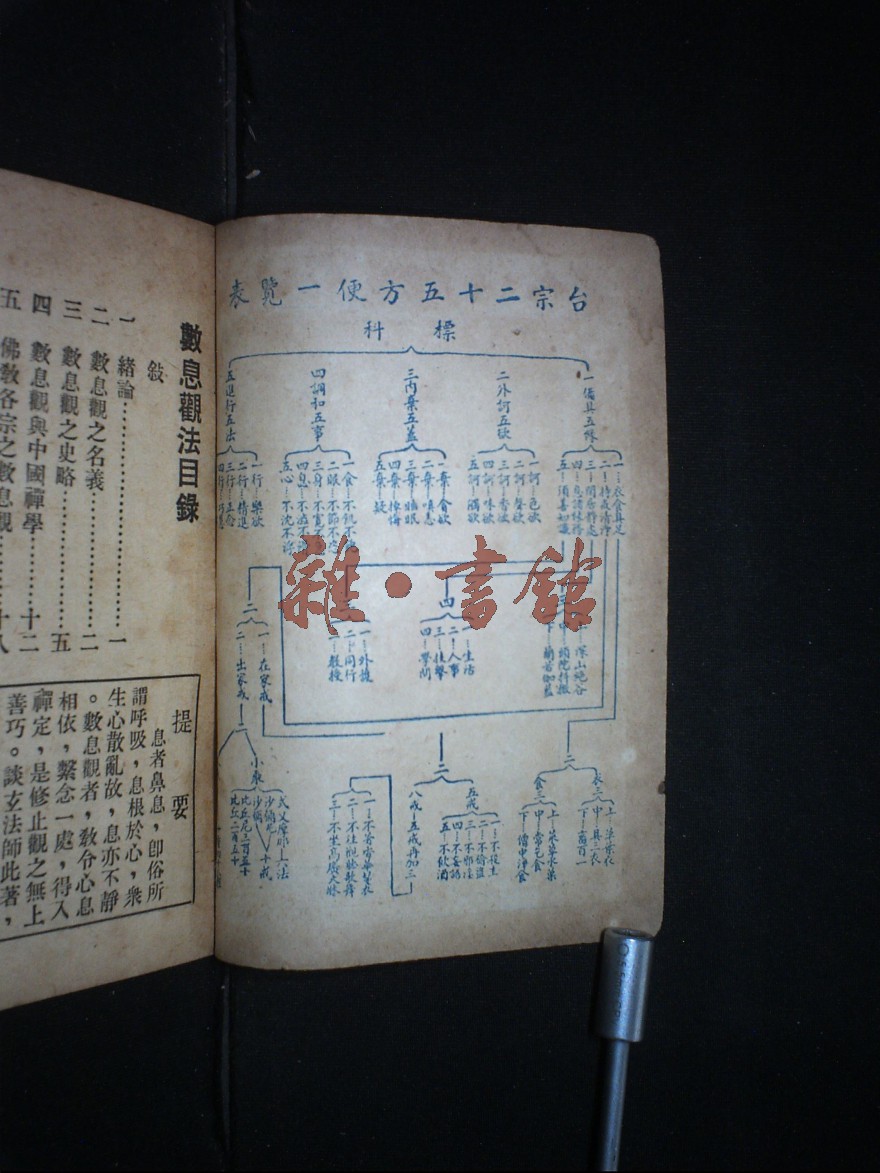 台宗二十五方便一覽表
標科
一備具五緣
一衣食具足
二持戒清淨
三閒居靜處
四息諸緣務
五須善知識
二外訶五欲
一訶色欲
二訶聲欲
三訶香欲
四訶味欲
五訶觸欲
三內棄五蓋
一棄貪欲
二棄嗔恚
三棄睡眠
四棄悼悔
五棄疑
四調和五事
一食不飢不飽
二眠不節不恣
三身不寬不急
四息不澁不滑
五心不沈不浮
五進行五法
一行樂欲
二行精進
三行正念
四行巧慧
深山絕谷
中頭陀抖擻
下蘭若伽藍
四
一生活
二人事
三技擊
四學問
一外護
二同行
一教授
二
一在家戒
二出家戒
二
衣三
上
中具三衣
下百一
食三
上
中常乞食
下僧中淨食
二
五戒
一不殺生
二不偷盜
三不邪淫
四不妄語
五不飲酒
八戒五戒再加三
三不坐高廣大牀
二
小乘
式叉摩那六法
沙彌尼
沙彌
十戒
比丘二百五十
雜·書館
數息觀法目錄
敍
一 緒論……一
二 數息觀之名義……二
三 數息觀之史略……五
四 數息觀與中國禪學……十二
五 佛教各宗之數息觀……十八
提要
息者鼻息，卽俗所
謂呼吸，息根於心，衆
生心散亂故，息亦不靜
。數息觀者，敎令心息
相依，繫念一處，得入
禪定，是修止觀之無上
善巧。談玄法師此著，